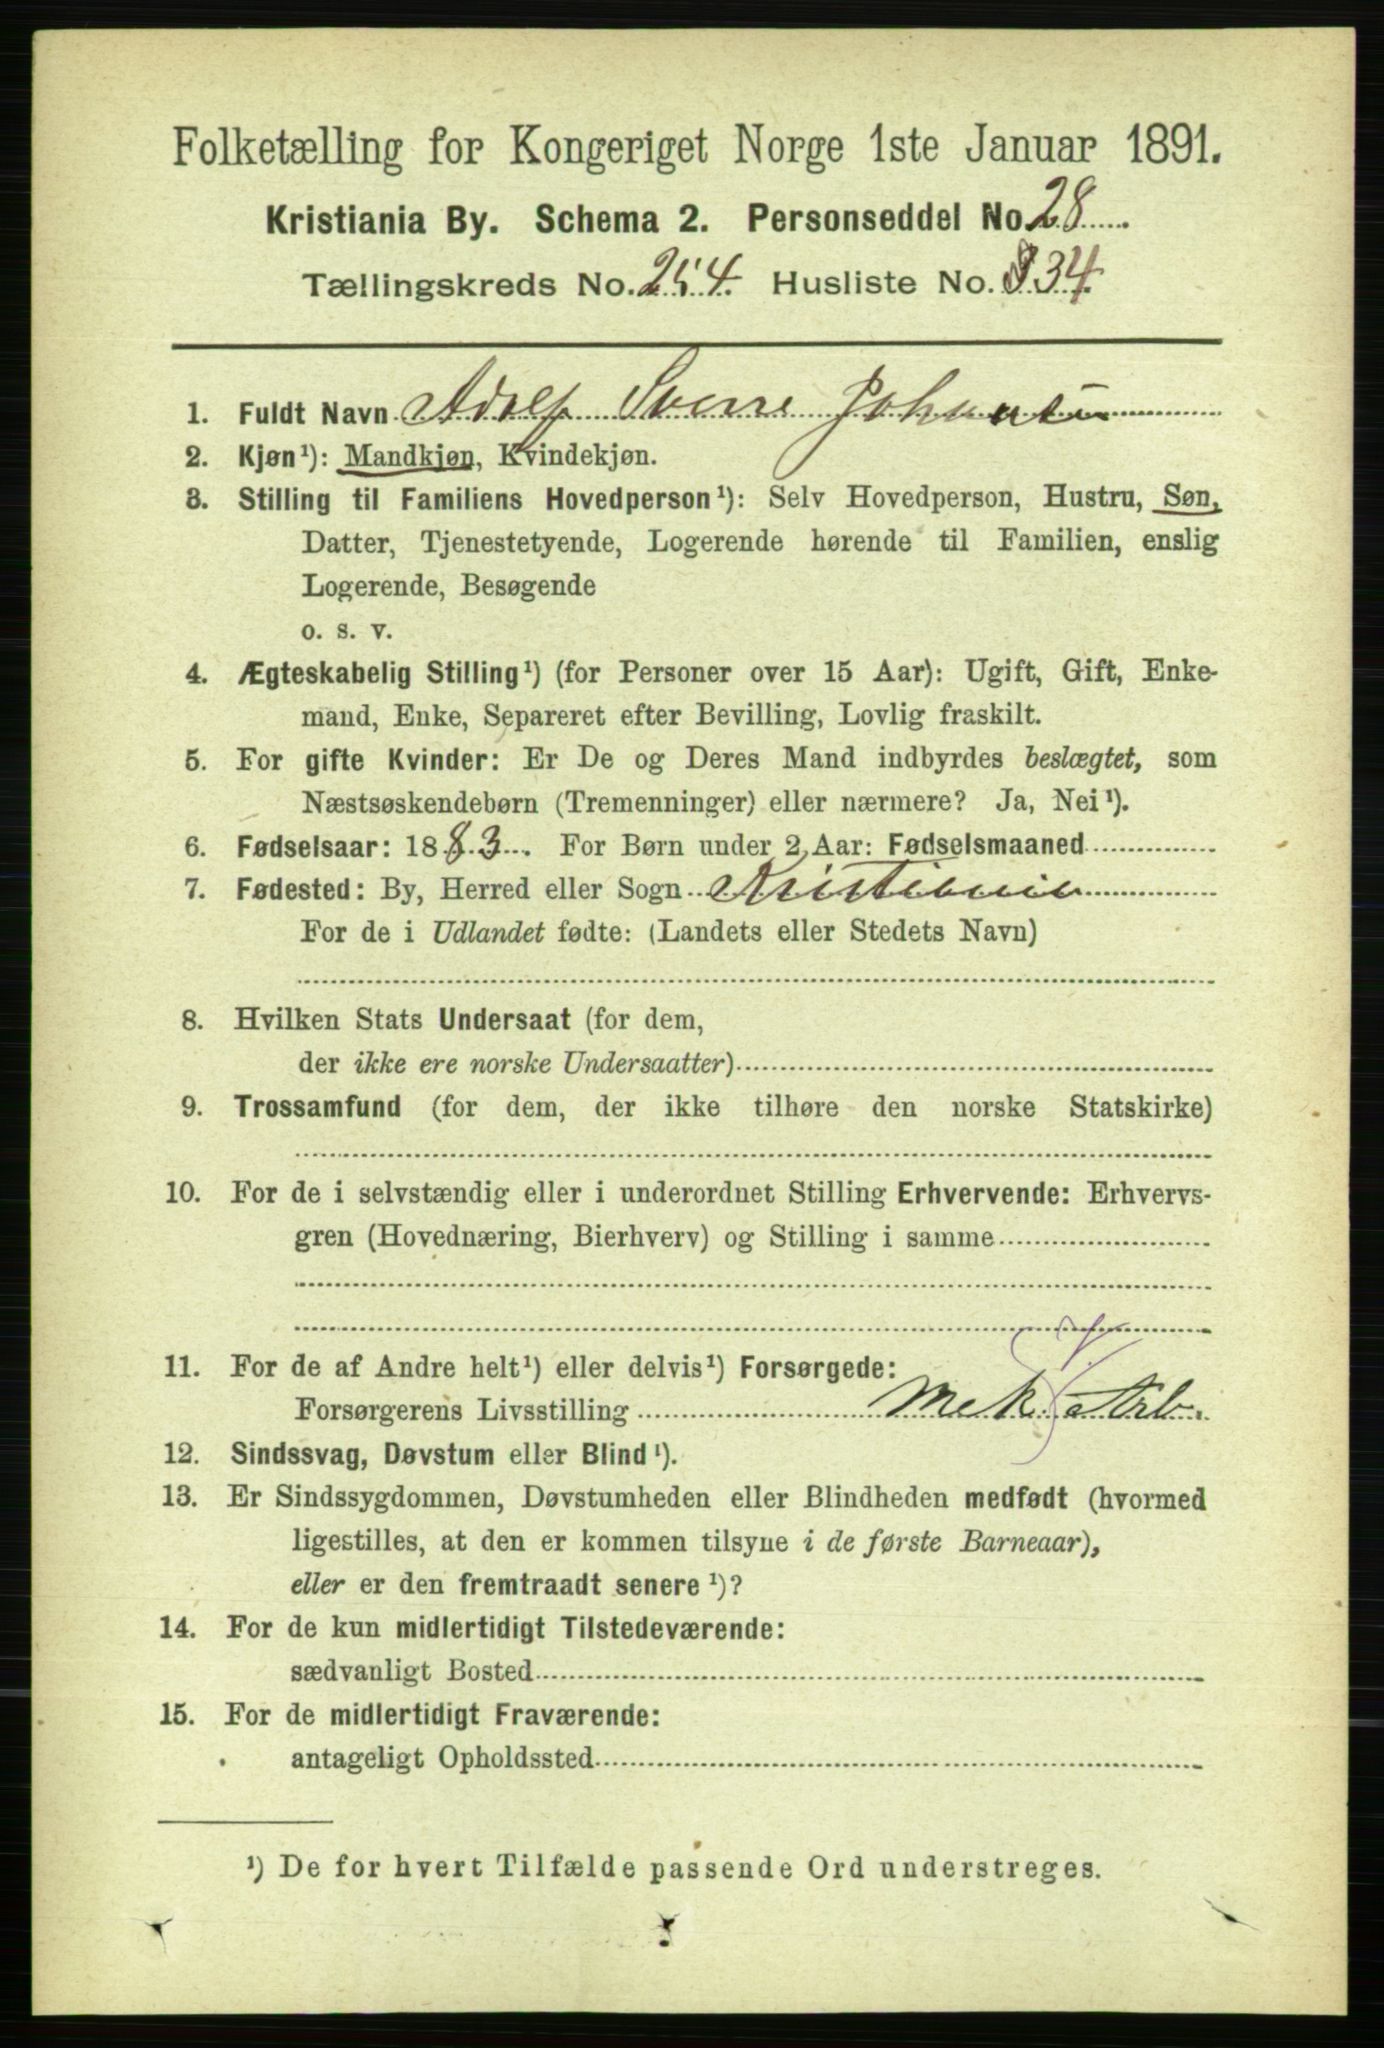 Folketælling for Kongeriget Norge 1ste Januar 1891.
Kristiania By. Schema 2. Personseddel No. 28
Tællingskreds No. 254 Husliste No. 834
1. Fuldt Navn Adolf Sverre Johansen
2. Kjøn¹): Mandkjøn, Kvindekjøn.
3. Stilling til Familiens Hovedperson¹): Selv Hovedperson, Hustru, Søn,
Datter, Tjenestetyende, Logerende hørende til Familien, enslig
Logerende, Besøgende
o. s. v.
4. Ægteskabelig Stilling¹) (for Personer over 15 Aar): Ugift, Gift, Enke-
mand, Enke, Separeret efter Bevilling, Lovlig fraskilt.
5. For gifte Kvinder: Er De og Deres Mand indbyrdes beslægtet, som
Næstsøskendebørn (Tremenninger) eller nærmere? Ja, Nei¹).
6. Fødselsaar: 1883. For Børn under 2 Aar: Fødselsmaaned
7. Fødested: By, Herred eller Sogn Kristiania
For de i Udlandet fødte: (Landets eller Stedets Navn)
8. Hvilken Stats Undersaat (for dem,
der ikke ere norske Undersaatter)
9. Trossamfund (for dem, der ikke tilhøre den norske Statskirke)
10. For de i selvstændig eller i underordnet Stilling Erhvervende: Erhvervs-
gren (Hovednæring, Bierhverv) og Stilling i samme
11. For de af Andre helt¹) eller delvis¹) Forsørgede:
Forsørgerens Livsstilling Mek Arb.
12. Sindssvag, Døvstum eller Blind¹).
13. Er Sindssygdommen, Døvstumheden eller Blindheden medfødt (hvormed
ligestilles, at den er kommen tilsyne i de første Barneaar),
eller er den fremtraadt senere¹)?
14. For de kun midlertidigt Tilstedeværende:
sædvanligt Bosted
15. For de midlertidigt Fraværende:
antageligt Opholdssted
¹) De for hvert Tilfælde passende Ord understreges.